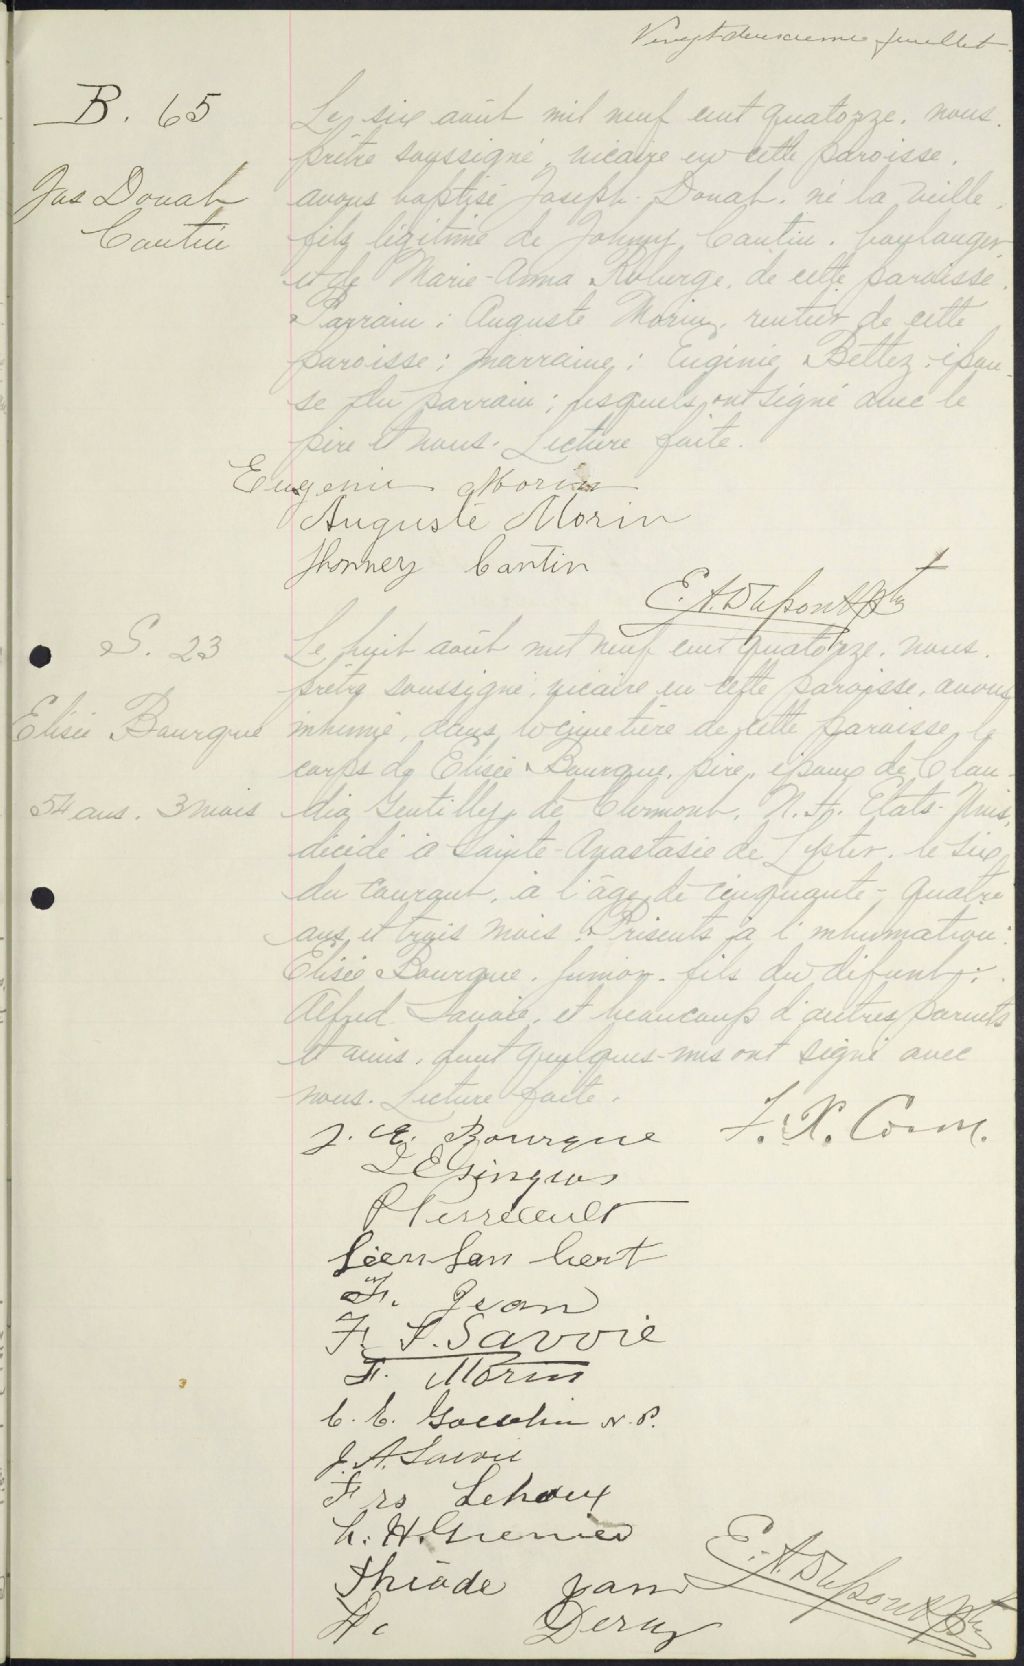 Vingt-deuxieme feuillet.
B. 65
Jos Donat
Cantin
Le six août mil neuf cent quatorze, nous,
prêtre soussigné, vicaire en cette paroisse,
avons baptisé Joseph-Donat, né la veille,
fils légitime de Johnny Cantin, boulanger,
et de Marie-Anna Roberge, de cette paroisse.
Parrain: Auguste Morin, rentier de cette
paroisse; marraine: Eugénie Bettez, épou-
se du parrain; lesquels ont signé avec le
père et nous. Lecture faite.
Eugenie Morin
Auguste Morin
Jhonney Cantin
E.A. Dupont Ptre
S. 23
Elisée Bourque
54 ans. 3 mois
Le huit août mil neuf cent quatorze, nous,
prêtre soussigné, vicaire en cette paroisse, avons
inhumé, dans le cimetière de cette paroisse, le
corps de Elisée Bourque, père, époux de Clau-
dia Gentilly, de Clermont, N.H. Etats-Unis,
décédé à Sainte-Anastasie de Lyster, le six
du courant, à l'âge de cinquante-quatre
ans et trois mois. Présents à l'inhumation:
Elisée Bourque, junior, fils du défunt;
Alfred Savoie, et beaucoup d'autres parents
et amis, dont quelques-uns ont signé avec
nous. Lecture faite.
J. E. Bourque
F. X.
P Perreault
F.
F. T. Savoie
F. Morin
C. E. Gosselin N.P.
J. A. Savoie
Frs Lehoux
L. H. Grenier
E.A. Dupont Ptre